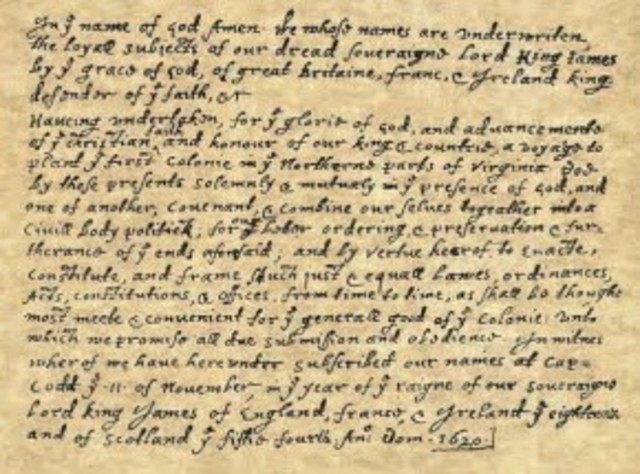 In yͤ name of God Amen. We whose names are underwriten,
the loyall subjects of our dread soveraigne Lord King James
by yͤ grace of God, of great Britaine, franc, & Ireland king,
defender of yͤ faith, &c
Haveing undertaken, for yͤ glorie of God, and advancemente
of yͤ christian faith and honour of our king & countrie, a voyage to
plant yͤ first colonie in yͤ Northerne parts of Virginia. Doe
by these presents solemnly & mutualy in yͤ presence of God, and
one of another, covenant, & combine our selves togeather into a
Civill body politick; for our better ordering, & preservation & fur=
therance of yͤ ends aforesaid; and by vertue hearof to enacte,
constitute, and frame shuch just & equall Lawes, ordinances,
Acts, constitutions, & offices, from time to time, as shall be thought
most meete & convenient for yͤ generall good of yͤ colonie: unto
which we promise all due submission and obedience. In witnes
wherof we have hereunder subscribed our names at Cap=
Codd yͤ .11. of November, in yͤ year of yͤ raigne of our soveraigne
Lord king James of England, france, & Ireland yͤ eighteenth
and of Scotland yͤ fiftie fourth. Ano: Dom. 1620.]